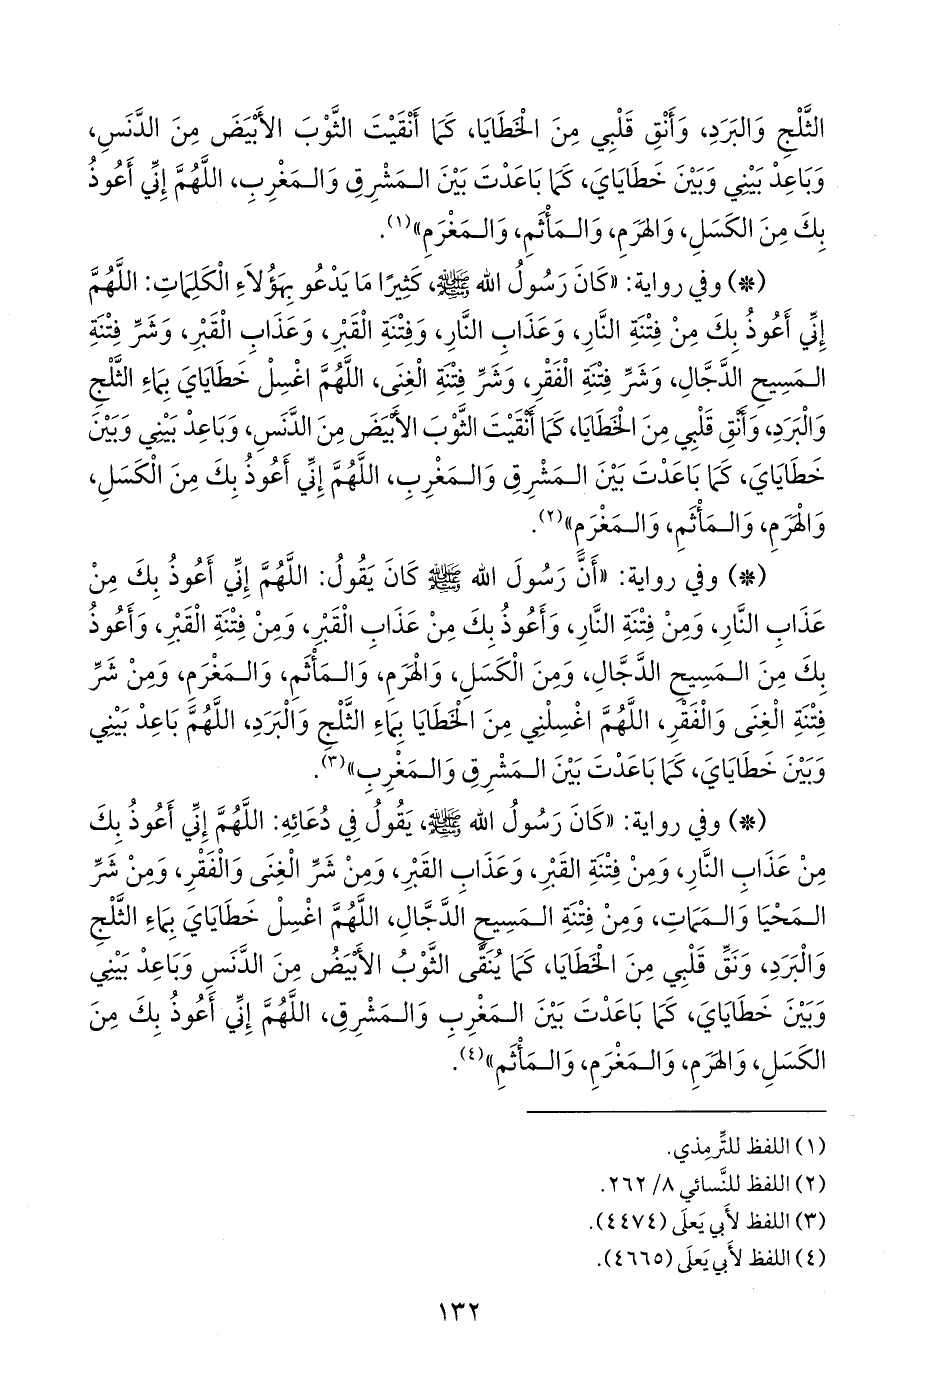 الثَّلْجِ وَالبَرَدِ، وَأَنْقِ قَلْبِي مِنَ الخَطَايَا، كَمَا أَنْقَيْتَ الثَّوْبَ الأَبْيَضَ مِنَ الدَّنَسِ،
وَبَاعِدْ بَيْنِي وَبَيْنَ خَطَايَايَ، كَمَا بَاعَدْتَ بَيْنَ المَشْرِقِ وَالمَغْرِبِ، اللَّهُمَّ إِنِّي أَعُوذُ
بِكَ مِنَ الكَسَلِ، وَالهَرَمِ، وَالمَأْثَمِ، وَالمَغْرَمِ»(١).
(*) وفي رواية: «كَانَ رَسُولُ الله ﷺ، كَثِيرًا مَا يَدْعُو بِهَؤُلاَءِ الْكَلِمَاتِ: اللَّهُمَّ
إِنِّي أَعُوذُ بِكَ مِنْ فِتْنَةِ النَّارِ، وَعَذَابِ النَّارِ، وَفِتْنَةِ الْقَبْرِ، وَعَذَابِ الْقَبْرِ، وَشَرِّ فِتْنَةِ
المَسِيحِ الدَّجَّالِ، وَشَرِّ فِتْنَةِ الْفَقْرِ، وَشَرِّ فِتْنَةِ الْغِنَى، اللَّهُمَّ اغْسِلْ خَطَايَايَ بِمَاءِ الثَّلْجِ
وَالْبَرَدِ، وَأَنْقِ قَلْبِي مِنَ الخَطَايَا، كَمَا أَنْقَيْتَ الثَّوْبَ الأَبْيَضَ مِنَ الدَّنَسِ، وَبَاعِدْ بَيْنِي وَبَيْنَ
خَطَايَايَ، كَمَا بَاعَدْتَ بَيْنَ المَشْرِقِ وَالمَغْرِبِ، اللَّهُمَّ إِنِّي أَعُوذُ بِكَ مِنَ الْكَسَلِ،
وَالْهَرَمِ، وَالمَأْثَمِ، وَالمَغْرَمِ»(٢).
(*) وفي رواية: «أَنَّ رَسُولَ الله ﷺ كَانَ يَقُولُ: اللَّهُمَّ إِنِّي أَعُوذُ بِكَ مِنْ
عَذَابِ النَّارِ، وَمِنْ فِتْنَةِ النَّارِ، وَأَعُوذُ بِكَ مِنْ عَذَابِ القَبْرِ، وَمِنْ فِتْنَةِ الْقَبْرِ، وَأَعُوذُ
بِكَ مِنَ المَسِيحِ الدَّجَّالِ، وَمِنَ الْكَسَلِ، وَالْهَرَمِ، وَالمَأْثَمِ، وَالمَغْرَمِ، وَمِنْ شَرِّ
فِتْنَةِ الْغِنَى وَالْفَقْرِ، اللَّهُمَّ اغْسِلْنِي مِنَ الخَطَايَا بِمَاءِ الثَّلْجِ وَالْبَرَدِ، اللَّهُمَّ بَاعِدْ بَيْنِي
وَبَيْنَ خَطَايَايَ، كَمَا بَاعَدْتَ بَيْنَ المَشْرِقِ وَالمَغْرِبِ»(٣).
(*) وفي رواية: «كَانَ رَسُولُ الله ﷺ، يَقُولُ فِي دُعَائِهِ: اللَّهُمَّ إِنِّي أَعُوذُ بِكَ
مِنْ عَذَابِ النَّارِ، وَمِنْ فِتْنَةِ القَبْرِ، وَعَذَابِ القَبْرِ، وَمِنْ شَرِّ الْغِنَى وَالْفَقْرِ، وَمِنْ شَرِّ
المَحْيَا وَالمَمَاتِ، وَمِنْ فِتْنَةِ المَسِيحِ الدَّجَّالِ، اللَّهُمَّ اغْسِلْ خَطَايَايَ بِمَاءِ الثَّلْجِ
وَالْبَرَدِ، وَنَقِّ قَلْبِي مِنَ الخَطَايَا، كَمَا يُنَقَّى الثَّوْبُ الأَبْيَضُ مِنَ الدَّنَسِ وَبَاعِدْ بَيْنِي
وَبَيْنَ خَطَايَايَ، كَمَا بَاعَدْتَ بَيْنَ المَغْرِبِ وَالمَشْرِقِ، اللَّهُمَّ إِنِّي أَعُوذُ بِكَ مِنَ
الكَسَلِ، وَالهَرَمِ، وَالمَغْرَمِ، وَالمَأْثَمِ»(٤).
(١) اللفظ للتِّرمِذي.
(٢) اللفظ للنَّسائي ٨/ ٢٦٢.
(٣) اللفظ لأَبي يَعلَى (٤٤٧٤).
(٤) اللفظ لأَبي يَعلَى (٤٦٦٥).
١٣٢